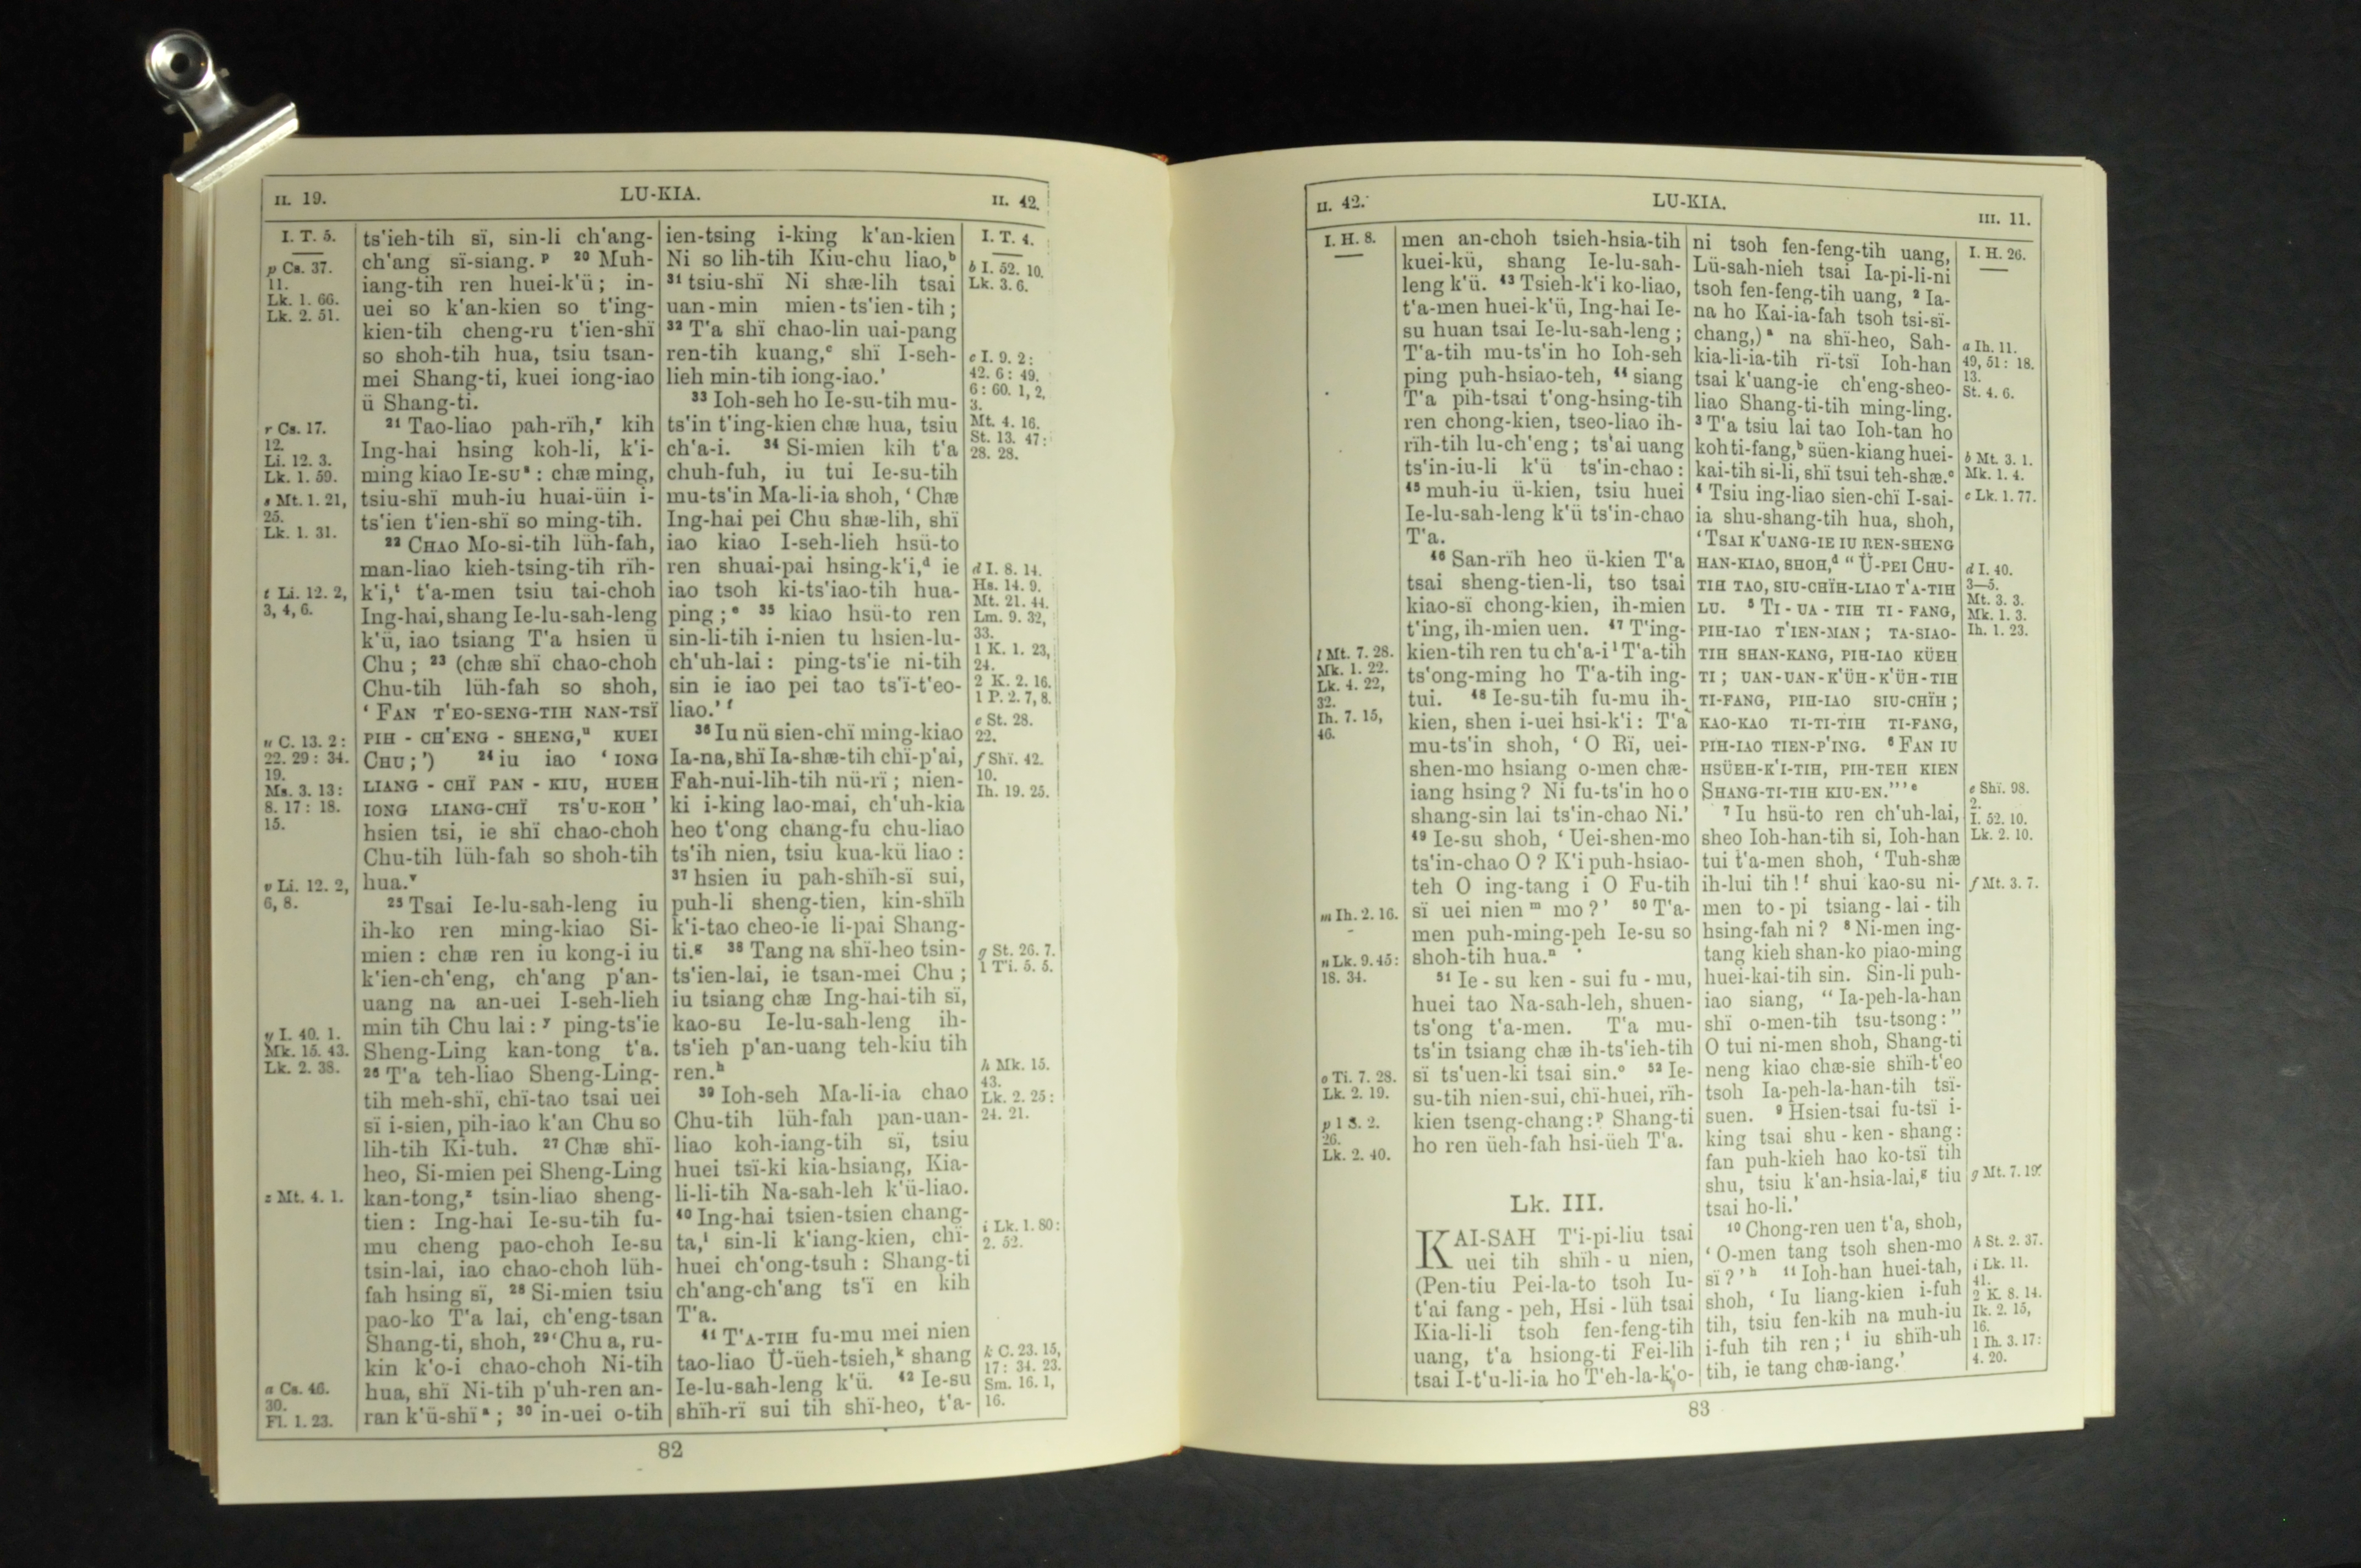 II. 19.
LU-KIA.
II. 42.
I. T. 5.
p Cs. 37.
11.
Lk. 1. 66.
Lk. 2. 51.
r Cs. 17.
12.
Li. 12. 3.
Lk. 1. 59.
s Mt. 1. 21,
25.
Lk. 1. 31.
t Li. 12. 2,
3, 4, 6.
u C. 13. 2:
22. 29: 34.
19.
Ms. 3. 13:
8. 17: 18.
15.
v Li. 12. 2,
6, 8.
y I. 40. 1.
Mk. 15. 43.
Lk. 2. 38.
z Mt. 4. 1.
a Cs. 46.
30.
Fl. 1. 23.
ts'ieh-tih sï, sin-li ch'ang-
ch'ang sï-siang.ᵖ ²⁰ Muh-
iang-tih ren huei-k'ü; in-
uei so k'an-kien so t'ing-
kien-tih cheng-ru t'ien-shï
so shoh-tih hua, tsiu tsan-
mei Shang-ti, kuei iong-iao
ü Shang-ti.
²¹ Tao-liao pah-rïh,ʳ kih
Ing-hai hsing koh-li, k'i-
ming kiao IE-SUˢ: chæ ming,
tsiu-shï muh-iu huai-üin i-
ts'ien t'ien-shï so ming-tih.
²² CHAO Mo-si-tih lüh-fah,
man-liao kieh-tsing-tih rïh-
k'i,ᵗ t'a-men tsiu tai-choh
Ing-hai, shang Ie-lu-sah-leng
k'ü, iao tsiang T'a hsien ü
Chu; ²³ (chæ shï chao-choh
Chu-tih lüh-fah so shoh,
‘FAN T'EO-SENG-TIH NAN-TSÏ
PIH-CH'ENG-SHENG,ᵘ KUEI
CHU;’) ²⁴ iu iao ‘IONG
LIANG-CHÏ PAN-KIU, HUEH
IONG LIANG-CHÏ TS'U-KOH’
hsien tsi, ie shï chao-choh
Chu-tih lüh-fah so shoh-tih
hua.ᵛ
²⁵ Tsai Ie-lu-sah-leng iu
ih-ko ren ming-kiao Si-
mien: chæ ren iu kong-i iu
k'ien-ch'eng, ch'ang p'an-
uang na an-uei I-seh-lieh
min tih Chu lai:ʸ ping-ts'ie
Sheng-Ling kan-tong t'a.
²⁶ T'a teh-liao Sheng-Ling-
tih meh-shï, chï-tao tsai uei
sï i-sien, pih-iao k'an Chu so
lih-tih Ki-tuh. ²⁷ Chæ shï-
heo, Si-mien pei Sheng-Ling
kan-tong,ᶻ tsin-liao sheng-
tien: Ing-hai Ie-su-tih fu-
mu cheng pao-choh Ie-su
tsin-lai, iao chao-choh lüh-
fah hsing sï, ²⁸ Si-mien tsiu
pao-ko T'a lai, ch'eng-tsan
Shang-ti, shoh, ²⁹ ‘Chu a, ru-
kin k'o-i chao-choh Ni-tih
hua, shï Ni-tih p'uh-ren an-
ran k'ü-shïᵃ; ³⁰ in-uei o-tih
ien-tsing i-king k'an-kien
Ni so lih-tih Kiu-chu liao,ᵇ
³¹ tsiu-shï Ni shæ-lih tsai
uan-min mien-ts'ien-tih;
³² T'a shï chao-lin uai-pang
ren-tih kuang,ᶜ shï I-seh-
lieh min-tih iong-iao.’
³³ Ioh-seh ho Ie-su-tih mu-
ts'in t'ing-kien chæ hua, tsiu
ch'a-i. ³⁴ Si-mien kih t'a
chuh-fuh, iu tui Ie-su-tih
mu-ts'in Ma-li-ia shoh, ‘Chæ
Ing-hai pei Chu shæ-lih, shï
iao kiao I-seh-lieh hsü-to
ren shuai-pai hsing-k'i,ᵈ ie
iao tsoh ki-ts'iao-tih hua-
ping;ᵉ ³⁵ kiao hsü-to ren
sin-li-tih i-nien tu hsien-lu-
ch'uh-lai: ping-ts'ie ni-tih
sin ie iao pei tao ts'ï-t'eo-
liao.’ᶠ
³⁶ Iu nü sien-chï ming-kiao
Ia-na, shï Ia-shæ-tih chï-p'ai,
Fah-nui-lih-tih nü-rï; nien-
ki i-king lao-mai, ch'uh-kia
heo t'ong chang-fu chu-liao
ts'ih nien, tsiu kua-kü liao:
³⁷ hsien iu pah-shïh-sï sui,
puh-li sheng-tien, kin-shïh
k'i-tao cheo-ie li-pai Shang-
ti.ᵍ ³⁸ Tang na shï-heo tsin-
ts'ien-lai, ie tsan-mei Chu;
iu tsiang chæ Ing-hai-tih sï,
kao-su Ie-lu-sah-leng ih-
ts'ieh p'an-uang teh-kiu tih
ren.ʰ
³⁹ Ioh-seh Ma-li-ia chao
Chu-tih lüh-fah pan-uan-
liao koh-iang-tih sï, tsiu
huei tsï-ki kia-hsiang, Kia-
li-li-tih Na-sah-leh k'ü-liao.
⁴⁰ Ing-hai tsien-tsien chang-
ta,ⁱ sin-li k'iang-kien, chï-
huei ch'ong-tsuh: Shang-ti
ch'ang-ch'ang ts'ï en kih
T'a.
⁴¹ T'A-TIH fu-mu mei nien
tao-liao Ü-üeh-tsieh,ᵏ shang
Ie-lu-sah-leng k'ü. ⁴² Ie-su
shïh-rï sui tih shï-heo, t'a-
I. T. 4.
b I. 52. 10.
Lk. 3. 6.
c I. 9. 2:
42. 6: 49.
6: 60. 1, 2,
3.
Mt. 4. 16.
St. 13. 47:
28. 28.
d I. 8. 14.
Hs. 14. 9.
Mt. 21. 44.
Lm. 9. 32,
33.
1 K. 1. 23,
24.
2 K. 2. 16.
1 P. 2. 7, 8.
e St. 28.
22.
f Shï. 42.
10.
Ih. 19. 25.
g St. 26. 7.
1 T'i. 5. 5.
h Mk. 15.
43.
Lk. 2. 25:
24. 21.
i Lk. 1. 80:
2. 52.
k C. 23. 15,
17: 34. 23.
Sm. 16. 1,
16.
82
II. 42.
LU-KIA.
III. 11.
I. H. 8.
l Mt. 7. 28.
Mk. 1. 22.
Lk. 4. 22,
32.
Ih. 7. 15,
46.
m Ih. 2. 16.
n Lk. 9. 45:
18. 34.
o Ti. 7. 28.
Lk. 2. 19.
p 1 S. 2.
26.
Lk. 2. 40.
men an-choh tsieh-hsia-tih
kuei-kü, shang Ie-lu-sah-
leng k'ü. ⁴³ Tsieh-k'i ko-liao,
t'a-men huei-k'ü, Ing-hai Ie-
su huan tsai Ie-lu-sah-leng;
T'a-tih mu-ts'in ho Ioh-seh
ping puh-hsiao-teh, ⁴⁴ siang
T'a pih-tsai t'ong-hsing-tih
ren chong-kien, tseo-liao ih-
rïh-tih lu-ch'eng; ts'ai uang
ts'in-iu-li k'ü ts'in-chao:
⁴⁵ muh-iu ü-kien, tsiu huei
Ie-lu-sah-leng k'ü ts'in-chao
T'a.
⁴⁶ San-rïh heo ü-kien T'a
tsai sheng-tien-li, tso tsai
kiao-sï chong-kien, ih-mien
t'ing, ih-mien uen. ⁴⁷ T'ing-
kien-tih ren tu ch'a-iˡ T'a-tih
ts'ong-ming ho T'a-tih ing-
tui. ⁴⁸ Ie-su-tih fu-mu ih-
kien, shen i-uei hsi-k'i: T'a
mu-ts'in shoh, ‘O Rï, uei-
shen-mo hsiang o-men chæ-
iang hsing? Ni fu-ts'in ho o
shang-sin lai ts'in-chao Ni.’
⁴⁹ Ie-su shoh, ‘Uei-shen-mo
ts'in-chao O? K'i puh-hsiao-
teh O ing-tang i O Fu-tih
sï uei nienᵐ mo?’ ⁵⁰ T'a-
men puh-ming-peh Ie-su so
shoh-tih hua.ⁿ
⁵¹ Ie-su ken-sui fu-mu,
huei tao Na-sah-leh, shuen-
ts'ong t'a-men. T'a mu-
ts'in tsiang chæ ih-ts'ieh-tih
sï ts'uen-ki tsai sin.ᵒ ⁵² Ie-
su-tih nien-sui, chï-huei, rïh-
kien tseng-chang:ᵖ Shang-ti
ho ren üeh-fah hsi-üeh T'a.
Lk. III.
KAI-SAH T'i-pi-liu tsai
uei tih shïh-u nien,
(Pen-tiu Pei-la-to tsoh Iu-
t'ai fang-peh, Hsi-lüh tsai
Kia-li-li tsoh fen-feng-tih
uang, t'a hsiong-ti Fei-lih
tsai I-t'u-li-ia ho T'eh-la-k'o-
ni tsoh fen-feng-tih uang,
Lü-sah-nieh tsai Ia-pi-li-ni
tsoh fen-feng-tih uang, ² Ia-
na ho Kai-ia-fah tsoh tsi-sï-
chang,)ᵃ na shï-heo, Sah-
kia-li-ia-tih rï-tsï Ioh-han
tsai k'uang-ie ch'eng-sheo-
liao Shang-ti-tih ming-ling.
³ T'a tsiu lai tao Ioh-tan ho
koh ti-fang,ᵇ süen-kiang huei-
kai-tih si-li, shï tsui teh-shæ.ᶜ
⁴ Tsiu ing-liao sien-chï I-sai-
ia shu-shang-tih hua, shoh,
‘TSAI K'UANG-IE IU REN-SHENG
HAN-KIAO, SHOH,ᵈ “Ü-PEI CHU-
TIH TAO, SIU-CHÏH-LIAO T'A-TIH
LU. ⁵ TI-UA-TIH TI-FANG,
PIH-IAO T'IEN-MAN; TA-SIAO-
TIH SHAN-KANG, PIH-IAO KÜEH
TI; UAN-UAN-K'ÜH-K'ÜH-TIH
TI-FANG, PIH-IAO SIU-CHÏH;
KAO-KAO TI-TI-TIH TI-FANG,
PIH-IAO TIEN-P'ING. ⁶ FAN IU
HSÜEH-K'I-TIH, PIH-TEH KIEN
SHANG-TI-TIH KIU-EN.”’ᵉ
⁷ Iu hsü-to ren ch'uh-lai,
sheo Ioh-han-tih si, Ioh-han
tui t'a-men shoh, ‘Tuh-shæ
ih-lui tih!ᶠ shui kao-su ni-
men to-pi tsiang-lai-tih
hsing-fah ni? ⁸ Ni-men ing-
tang kieh shan-ko piao-ming
huei-kai-tih sin. Sin-li puh-
iao siang, “Ia-peh-la-han
shï o-men-tih tsu-tsong:”
O tui ni-men shoh, Shang-ti
neng kiao chæ-sie shïh-t'eo
tsoh Ia-peh-la-han-tih tsï-
suen. ⁹ Hsien-tsai fu-tsï i-
king tsai shu-ken-shang:
fan puh-kieh hao ko-tsï tih
shu, tsiu k'an-hsia-lai,ᵍ tiu
tsai ho-li.’
¹⁰ Chong-ren uen t'a, shoh,
‘O-men tang tsoh shen-mo
sï?’ʰ ¹¹ Ioh-han huei-tah,
shoh, ‘Iu liang-kien i-fuh
tih, tsiu fen-kih na muh-iu
i-fuh tih ren;ⁱ iu shïh-uh
tih, ie tang chæ-iang.’
I. H. 26.
a Ih. 11.
49, 51: 18.
13.
St. 4. 6.
b Mt. 3. 1.
Mk. 1. 4.
c Lk. 1. 77.
d I. 40.
3—5.
Mt. 3. 3.
Mk. 1. 3.
Ih. 1. 23.
e Shï. 98.
2.
I. 52. 10.
Lk. 2. 10.
f Mt. 3. 7.
g Mt. 7. 19.
h St. 2. 37.
i Lk. 11.
41.
2 K. 8. 14.
Ik. 2. 15,
16.
1 Ih. 3. 17:
4. 20.
83